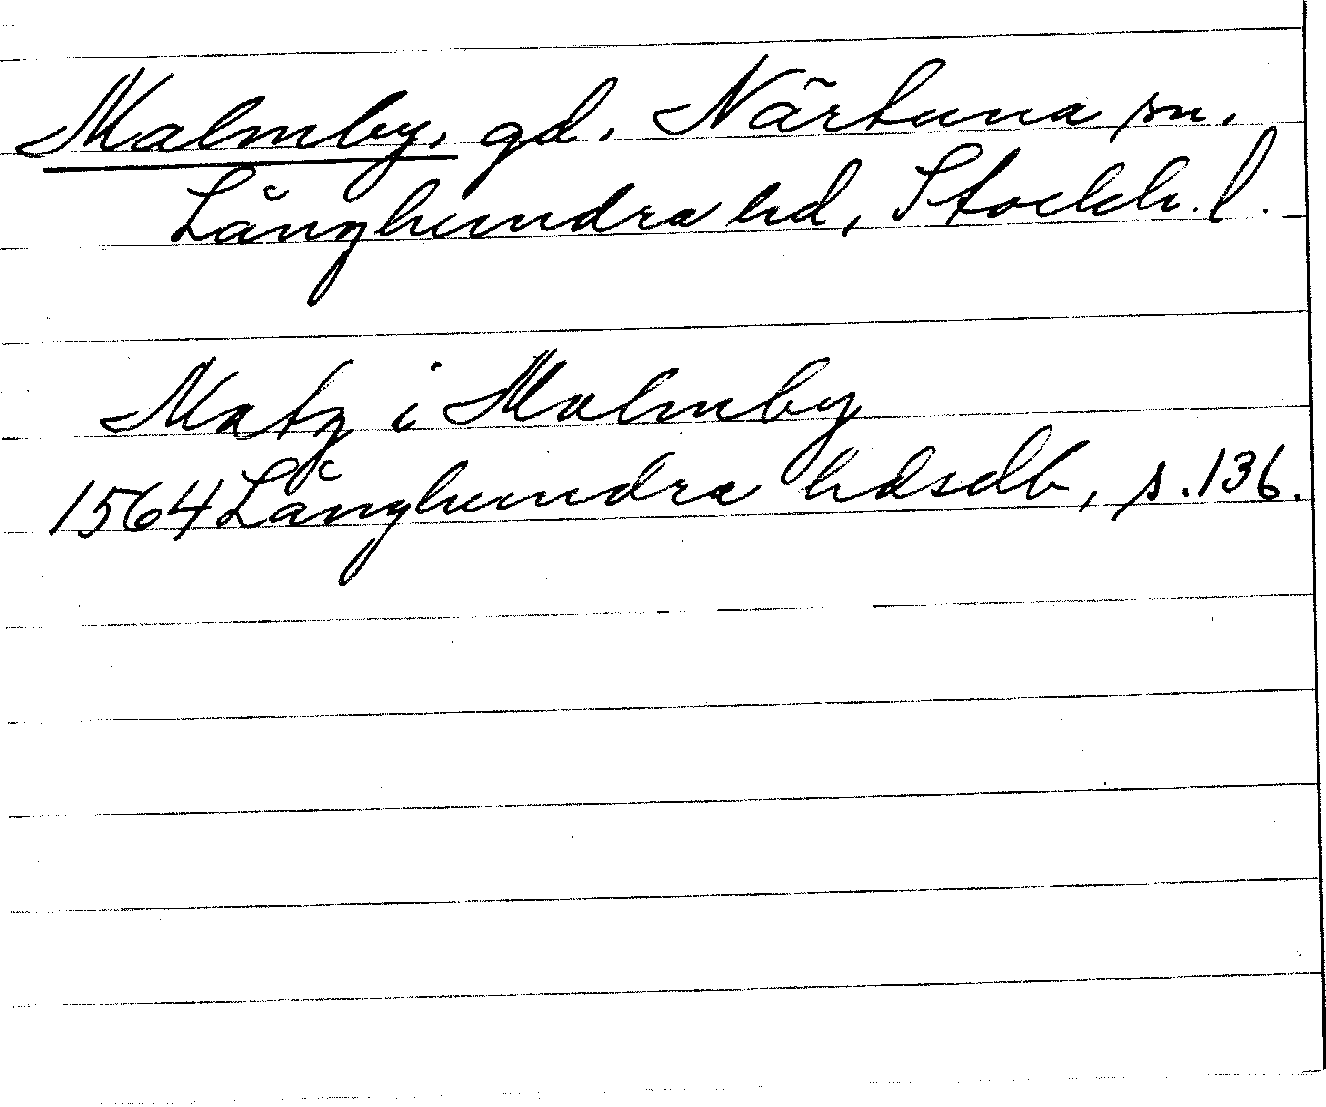 Malmby, gd. Närtuna sn.
Långhundra hd, Stockh. l.
Matz i Malmby
1564 Långhundra hdsdb, s. 136.